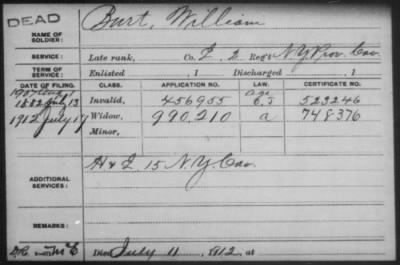 DEAD
NAME OF SOLDIER: Burt, William
SERVICE: Late rank, Co. L, 2 Reg't N.Y. Prov. Cav.
TERM OF SERVICE: Enlisted , 1 Discharged , 1
DATE OF FILING. CLASS. APPLICATION NO. LAW. CERTIFICATE NO.
1907 Aug age
1882 July 13 Invalid, 456955 G.L. 523246
1912 July 17 Widow, 990,210 a 748376
Minor,
ADDITIONAL SERVICES: H & L 15 N.Y. Cav.
REMARKS:
Died July 11, 1912, at